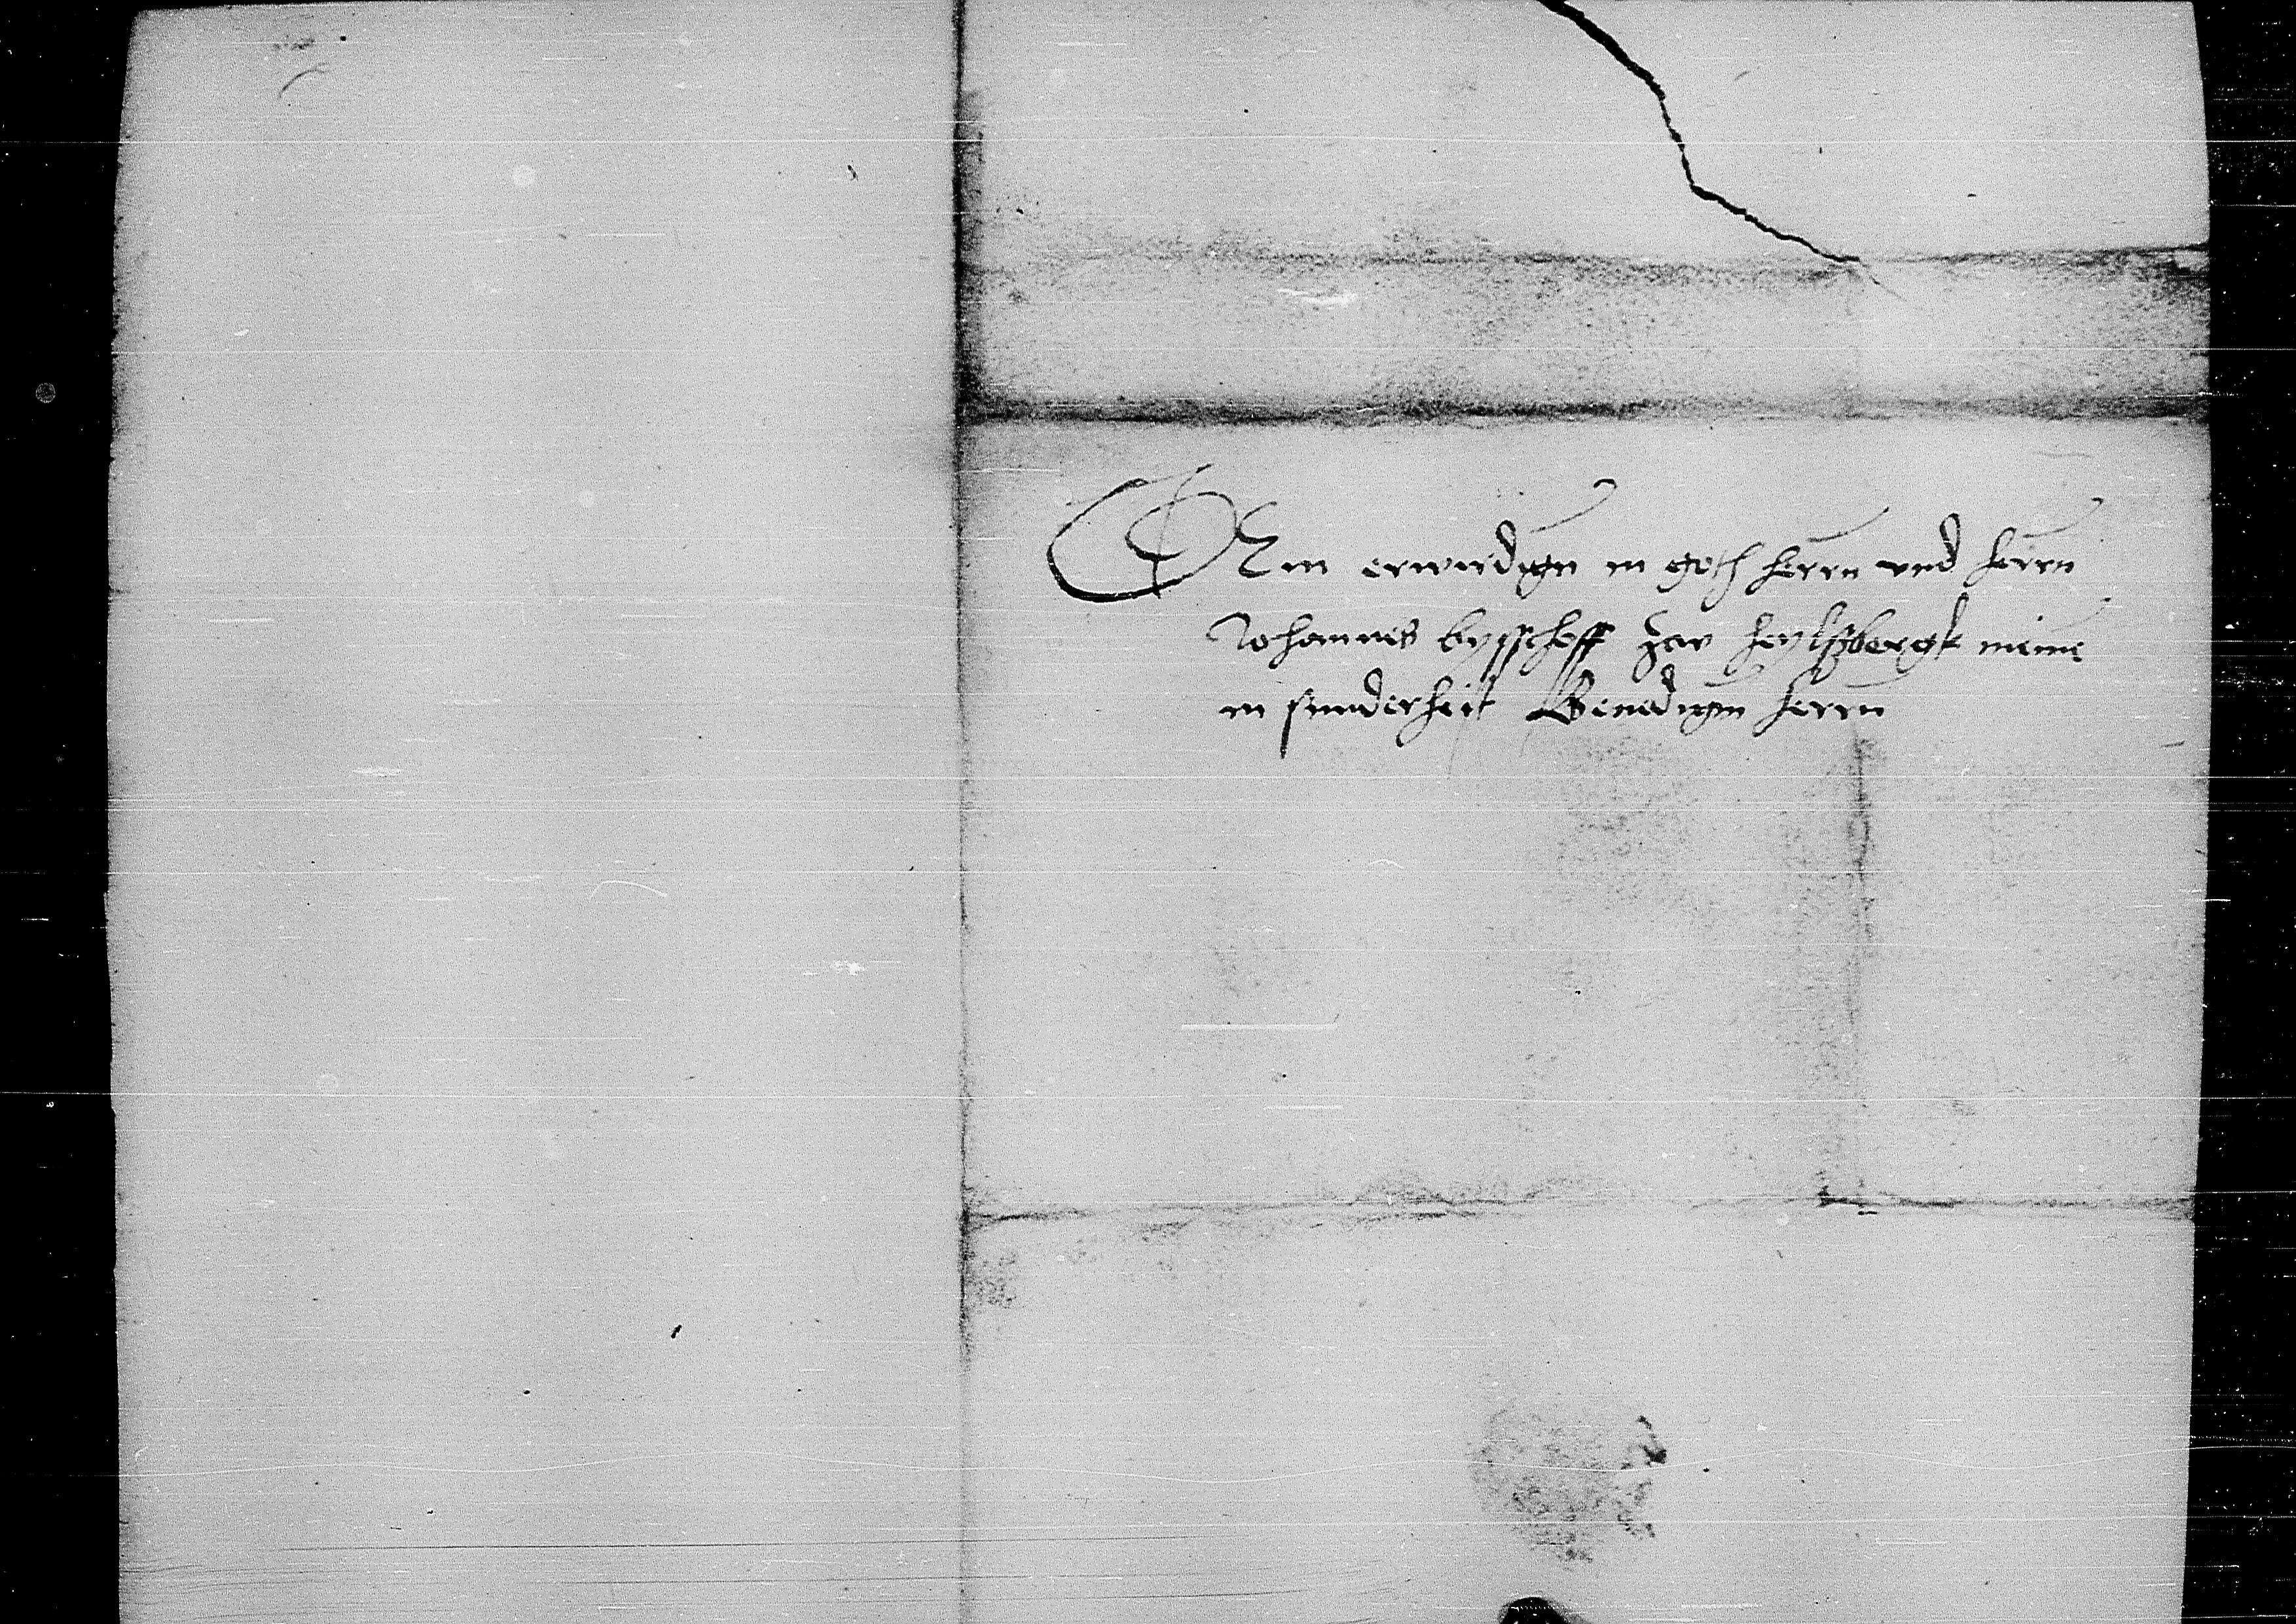 DEm erwirdigen in goth herrn und herrn
Johannes bysschoff zcw heylssbergk meinen
in sunderheit Genedigen herrn